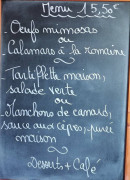 Menu 15,50€
. Oeufs mimosas
ou
. Calamars à la romaine
. Tartiflette maison,
salade verte
ou
. Manchons de canard,
sauce aux cèpes, purée
maison
Desserts + Café